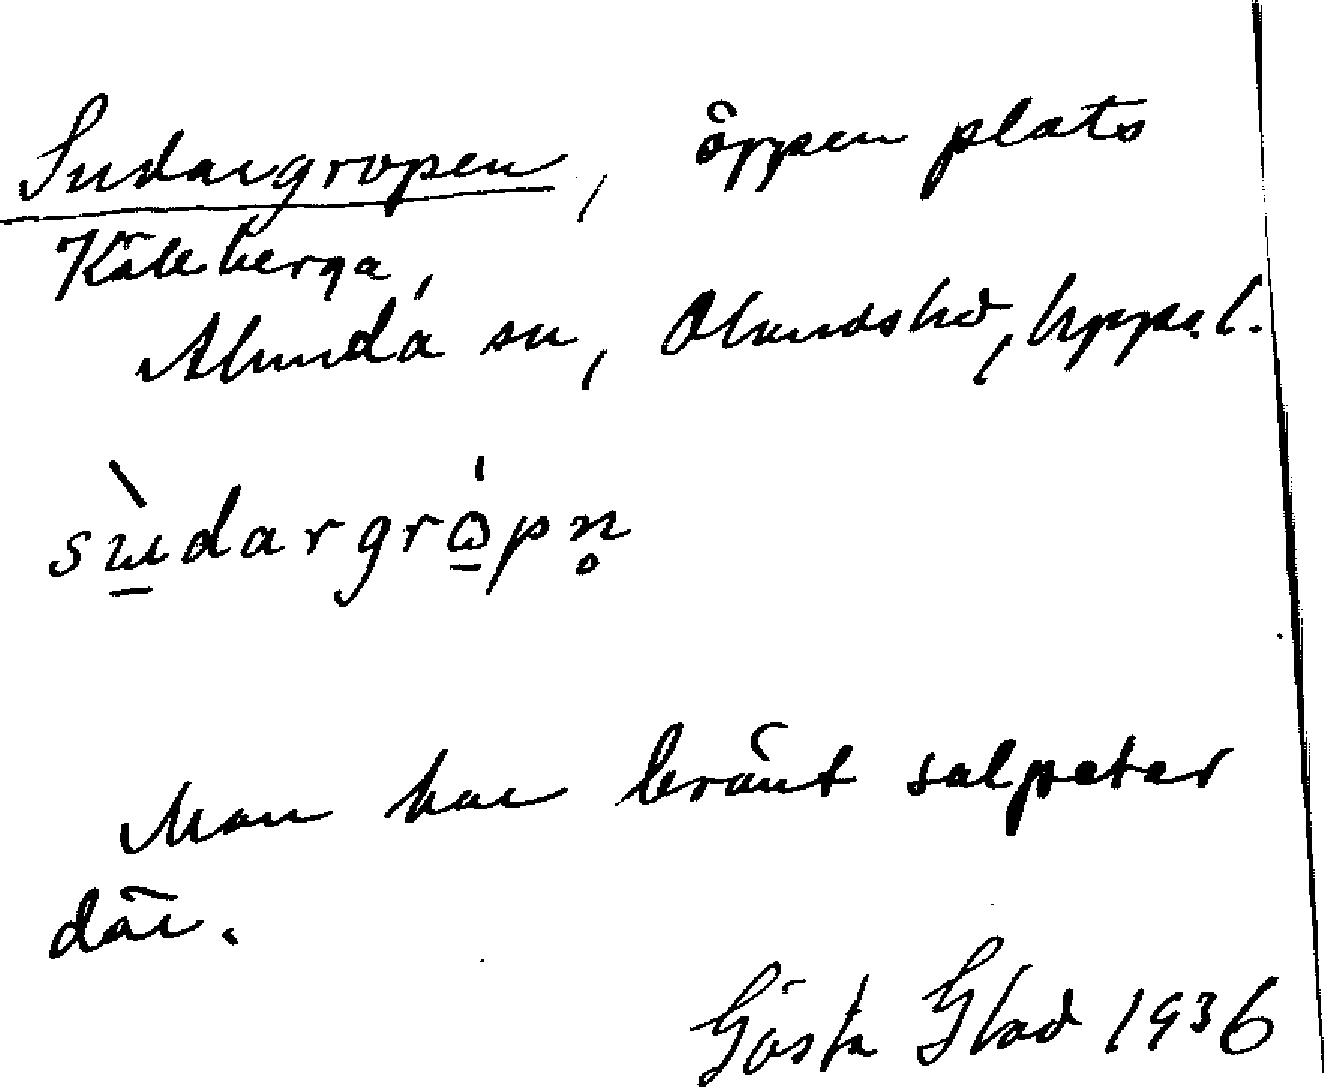 Sudargropen, öppen plats
Källberga,
Alunda sn, Olandshd, Upps.l.
sùdargròpn̥
Man har bränt salpeter
där.
Gösta Glad 1936